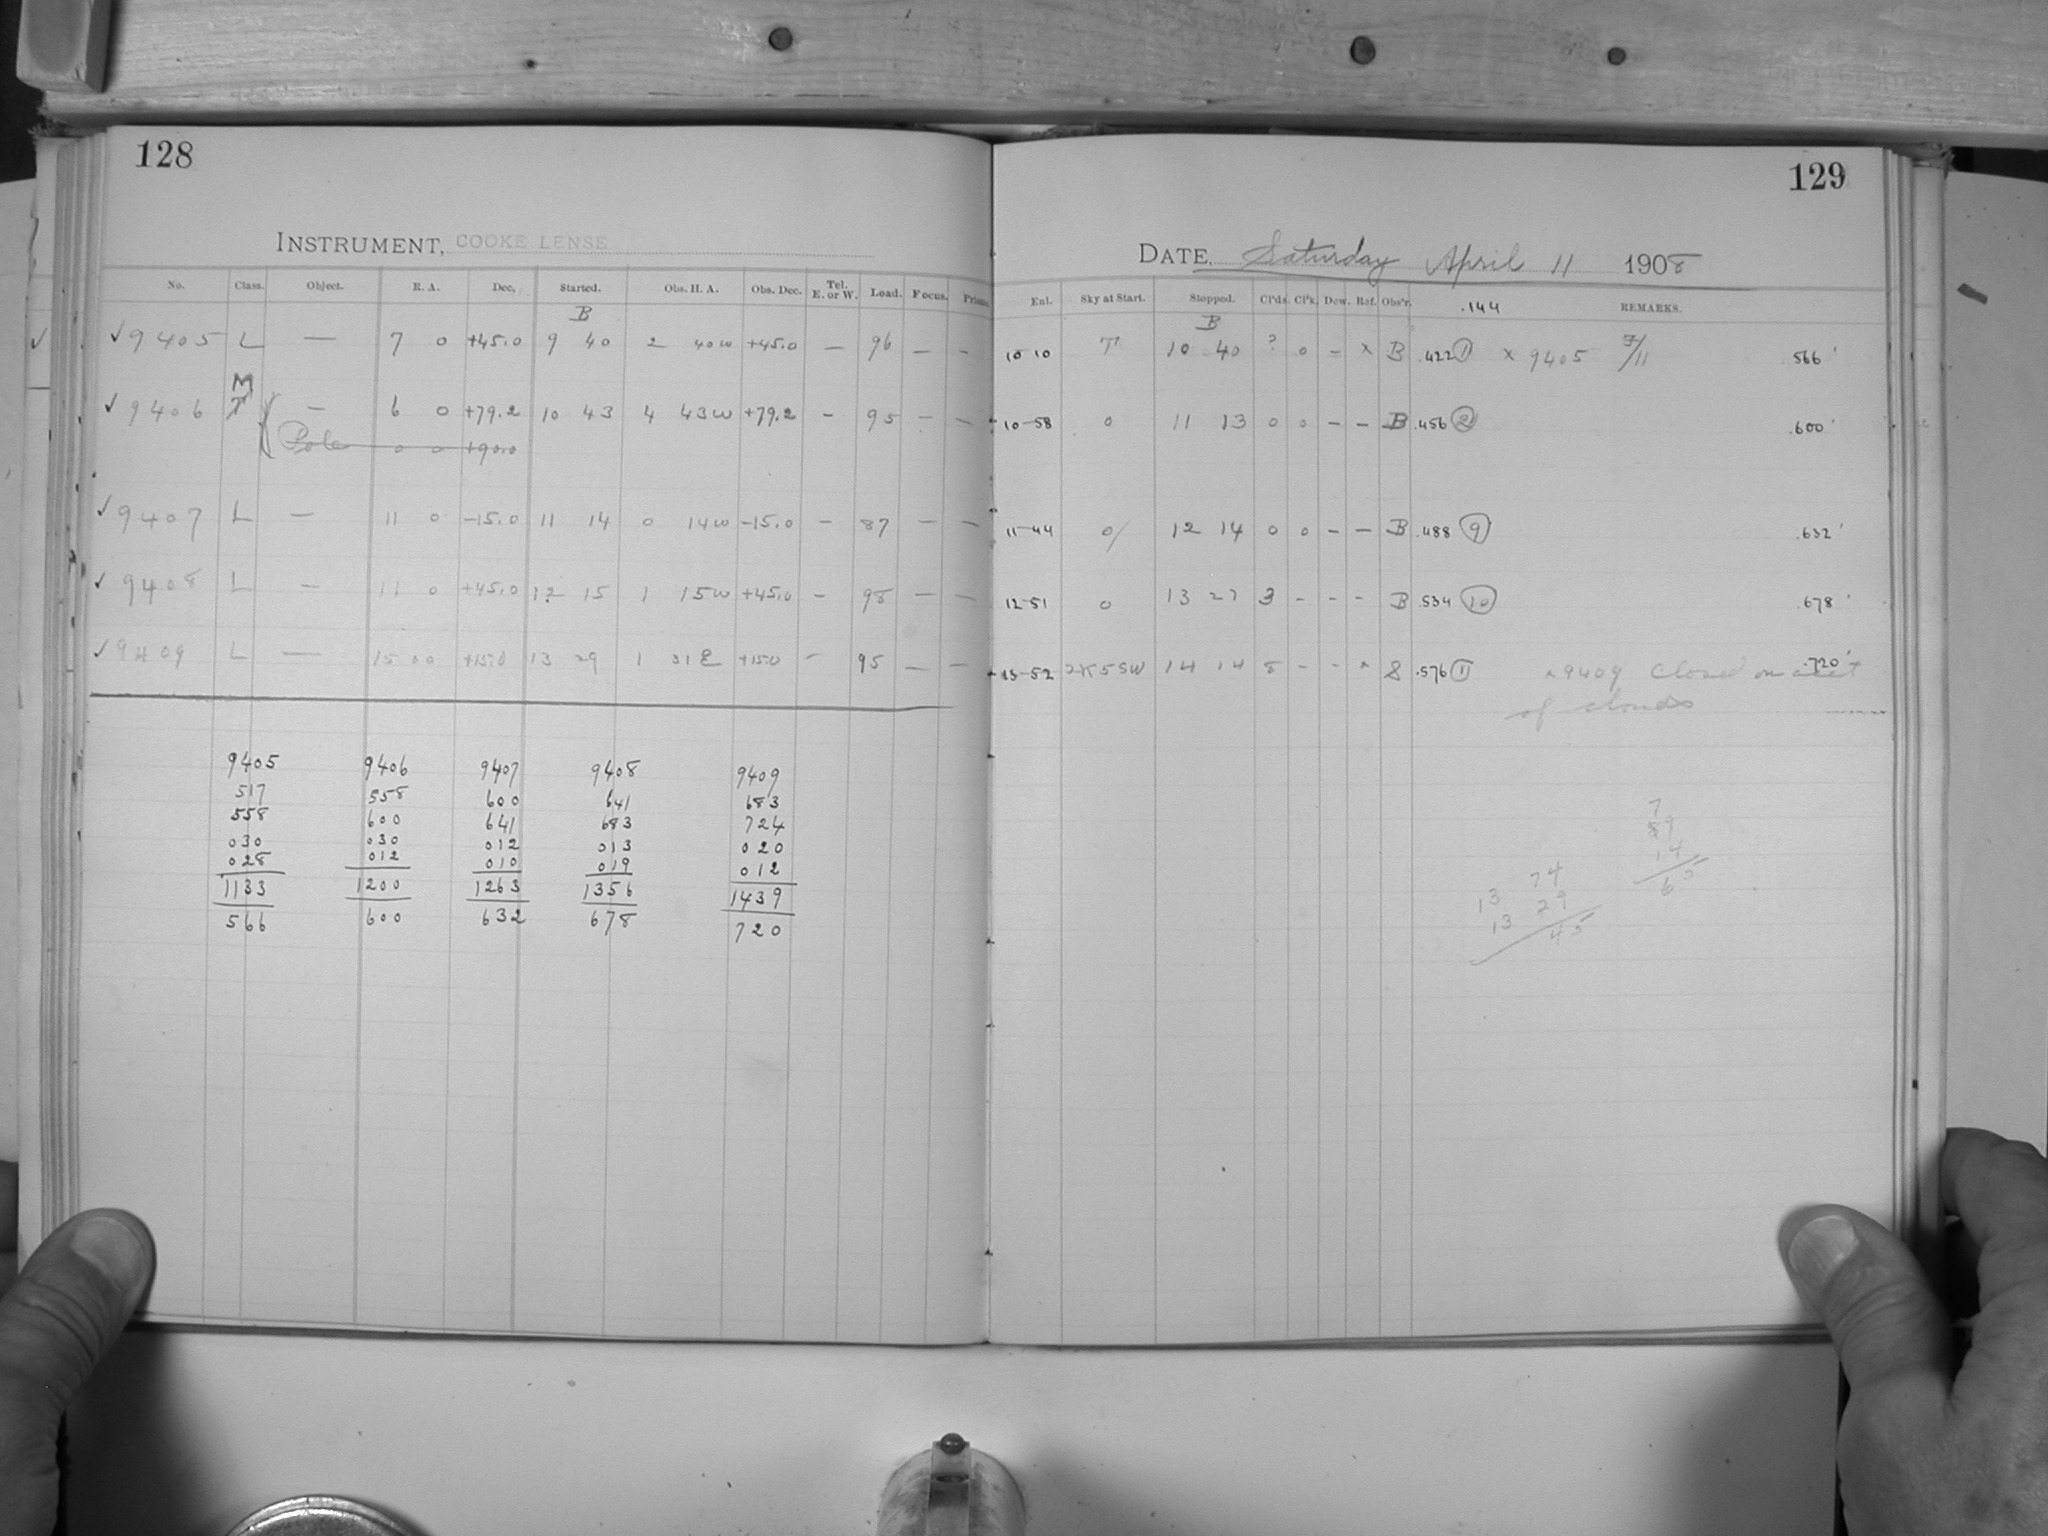 128
INSTRUMENT, COOKE LENSE
No. Class. Object. R. A. Dec. Started. Obs. H. A. Obs. Dec. Tel. E. or W. Load. Focus. Prisms.
B
✓ 9405 L — 7 0 +45.0 9 40 2 40w +45.0 — 96 — —
M
✓ 9406 — 6 0 +79.2 10 43 4 43w +79.2 - 95 - —
Pole 0 0 +90.0
✓ 9407 L — 11 0 -15.0 11 14 0 14w -15.0 - 87 — —
✓ 9408 L — 11 0 +45.0 12 15 1 15w +45.0 - 98 — —
✓ 9409 L — 15 00 +15.0 13 29 1 31E +15.0 - 95 — —
9405 9406 9407 9408 9409
517 558 600 641 683
558 600 641 683 724
030 030 012 013 020
028 012 010 019 012
1133 1200 1263 1356 1439
566 600 632 678 720
129
DATE, Saturday April 11 1908
Ent. Sky at Start. Stopped. Cl'ds. Cl'k. Dew. Ref. Obs'r. .144 REMARKS.
B
10-10 T 10 40 ? 0 - x B .422 1 x 9405 7/11 566
10-58 0 11 13 0 0 - - B .456 2 .600
11-44 0 12 14 0 0 - - B .488 9 .632
12-51 0 13 27 3 - - - B .534 10 .678
13-52 2K5SW 14 14 8 - - x S .576 1 x9409 Closed on acct .720
of clouds
7
89
14
65
13 74
13 29
45